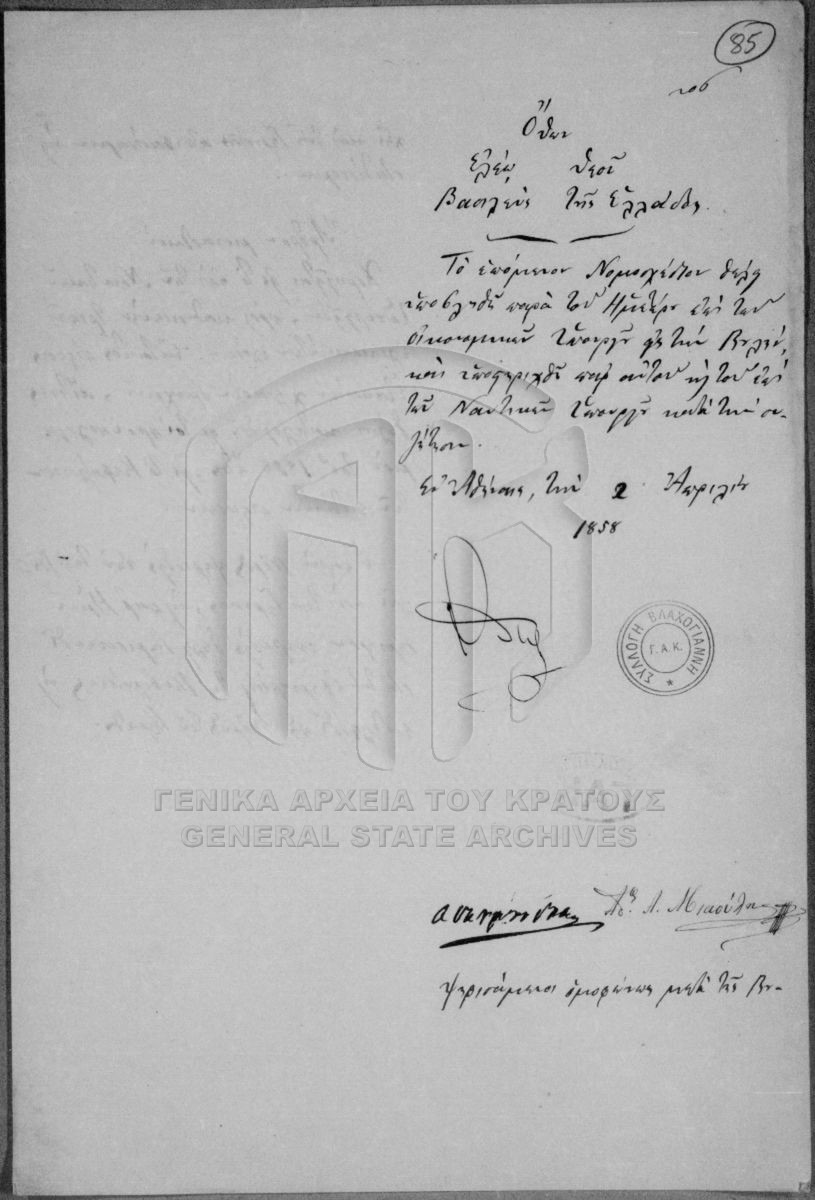 85
Ὄθων
Ἐλέῳ Θεοῦ
Βασιλεὺς τῆς Ἑλλάδος.
Τὸ ἑπόμενον Νομοσχέδιον θέλει
ὑποβληθῆ παρὰ τοῦ Ἡμετέρου ἐπὶ τῶν
Οἰκονομικῶν Ὑπουργοῦ εἰς τὴν Βουλήν,
καὶ ὑποστηριχθῆ παρ' αὐτοῦ καὶ τοῦ ἐπὶ
τῶν Ναυτικῶν Ὑπουργοῦ κατὰ τὴν συ-
ζήτησιν.
Ἐν Ἀθήναις, τὴν 2 Ἀπριλίου
1858
Ὄθων
ΣΥΛΛΟΓΗ ΒΛΑΧΟΓΙΑΝΝΗ
Γ.Α.Κ.
ΓΕΝΙΚΑ ΑΡΧΕΙΑ ΤΟΥ ΚΡΑΤΟΥΣ
GENERAL STATE ARCHIVES
Α. Μιαούλης
Ψηφισάμενοι ὁμοφώνως μετὰ τῆς Βου-